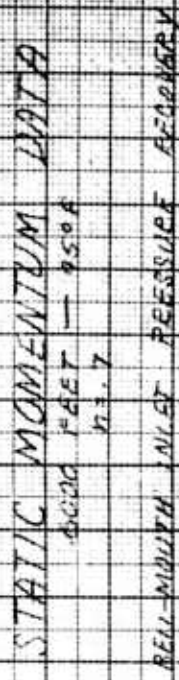 STATIC MOMENTUM DATA
6000 FEET — 95°F
n=.7
BELL-MOUTH INLET PRESSURE RECOVERY